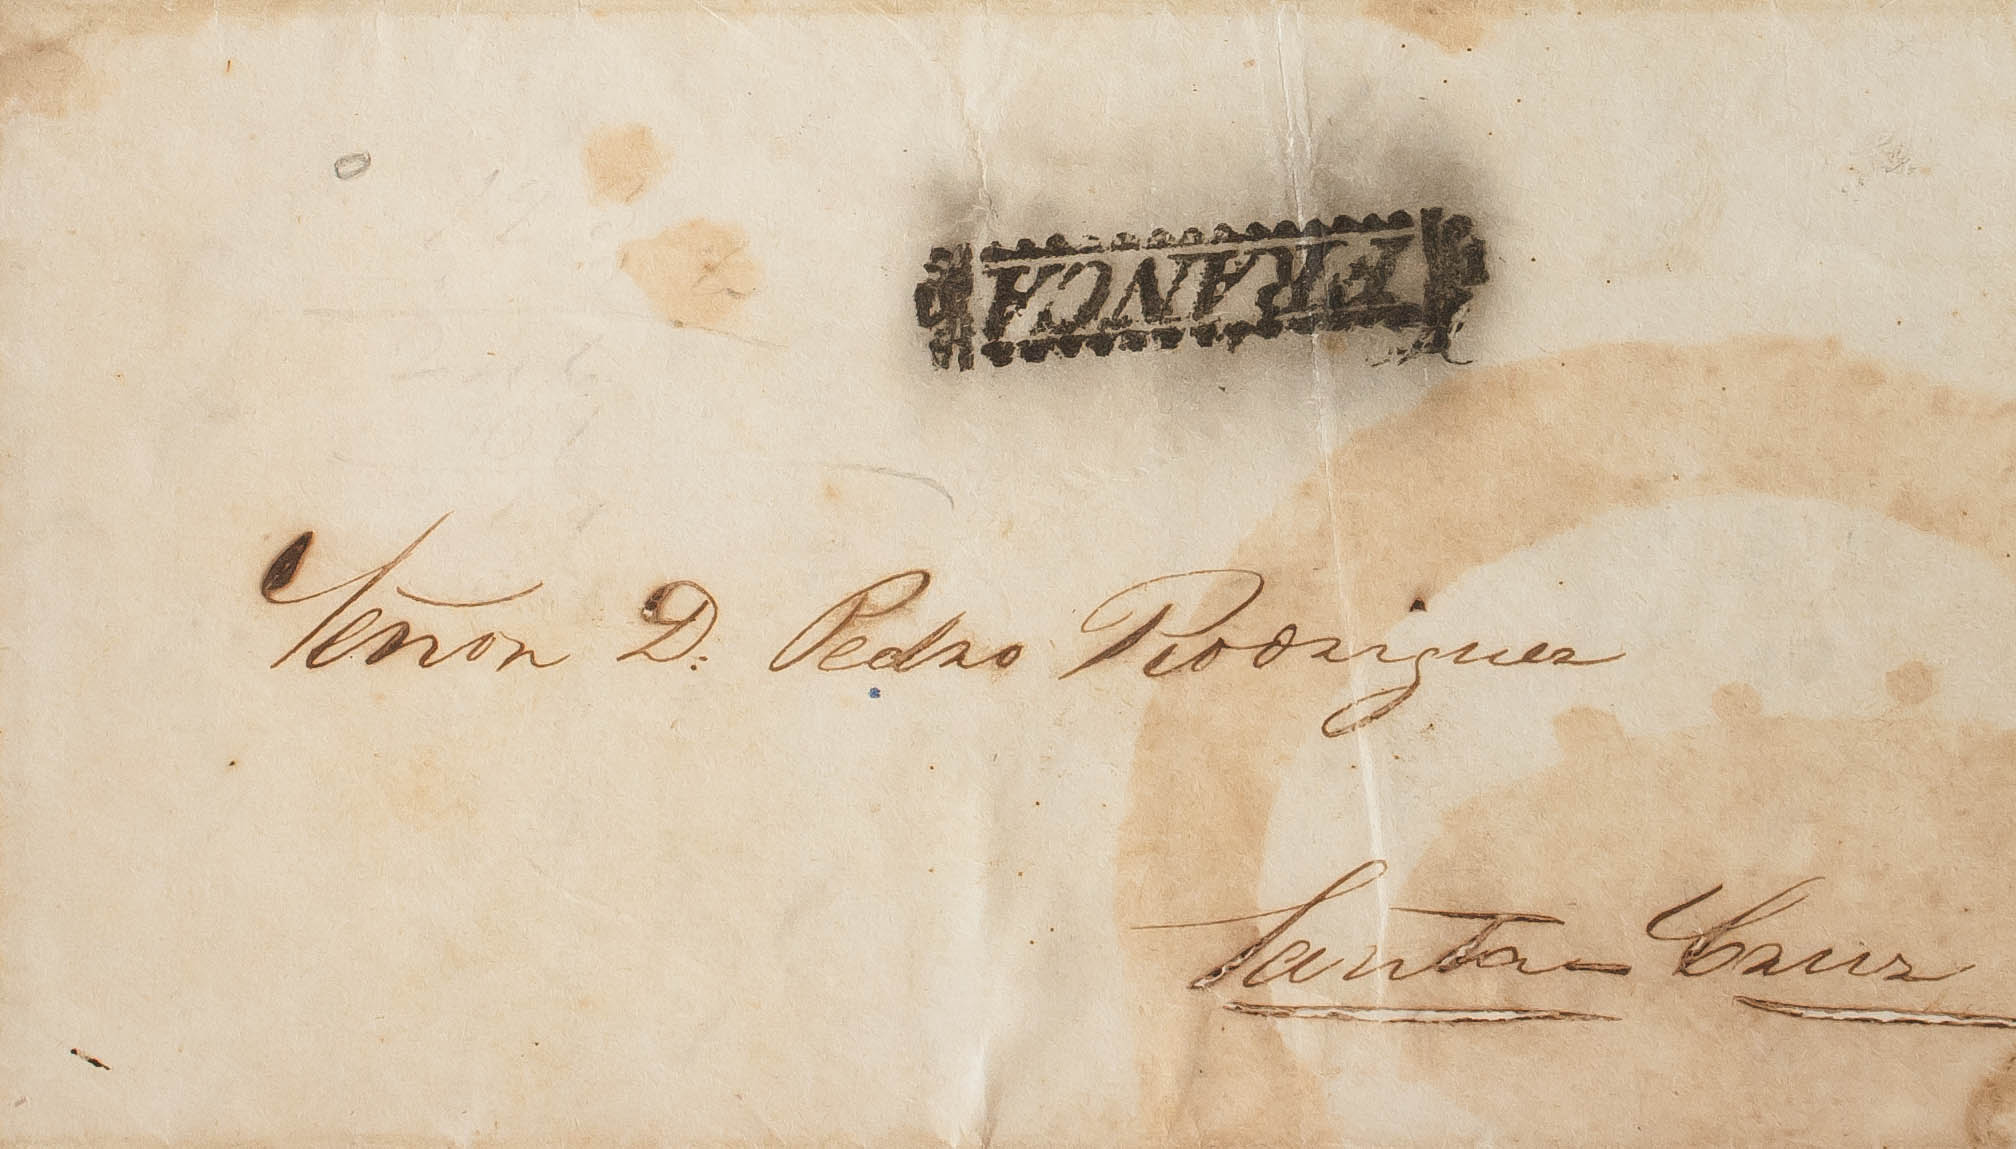 FRANCA
Señor D. Pedro Rodriguez
Santa Cruz